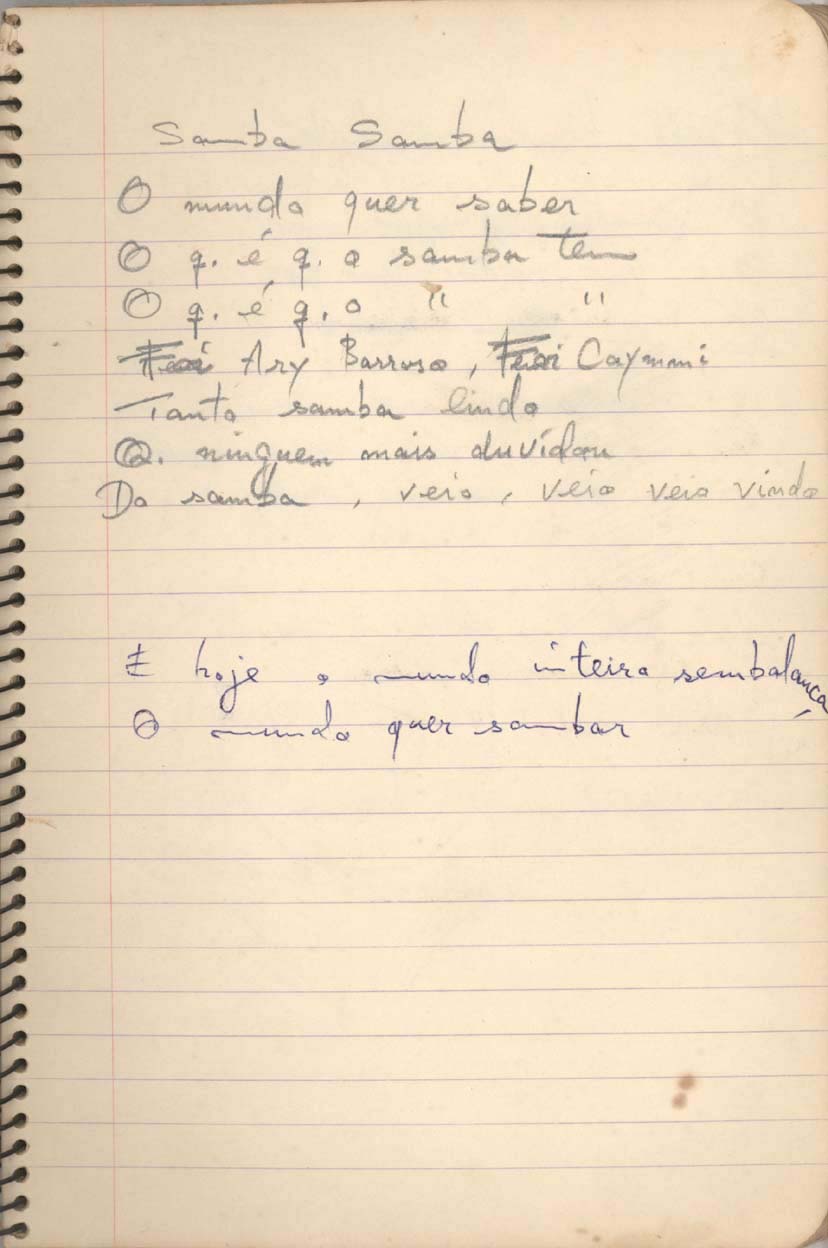 Samba Samba
O mundo quer saber
O q. é q. o samba tem
O q. é q. o " "
Foi Ary Barroso, Foi Caymmi
Tanto samba lindo
Q. ninguem mais duvidou
Do samba, veio, veio veio vindo
E hoje o mundo inteiro sembalança
O mundo quer sambar